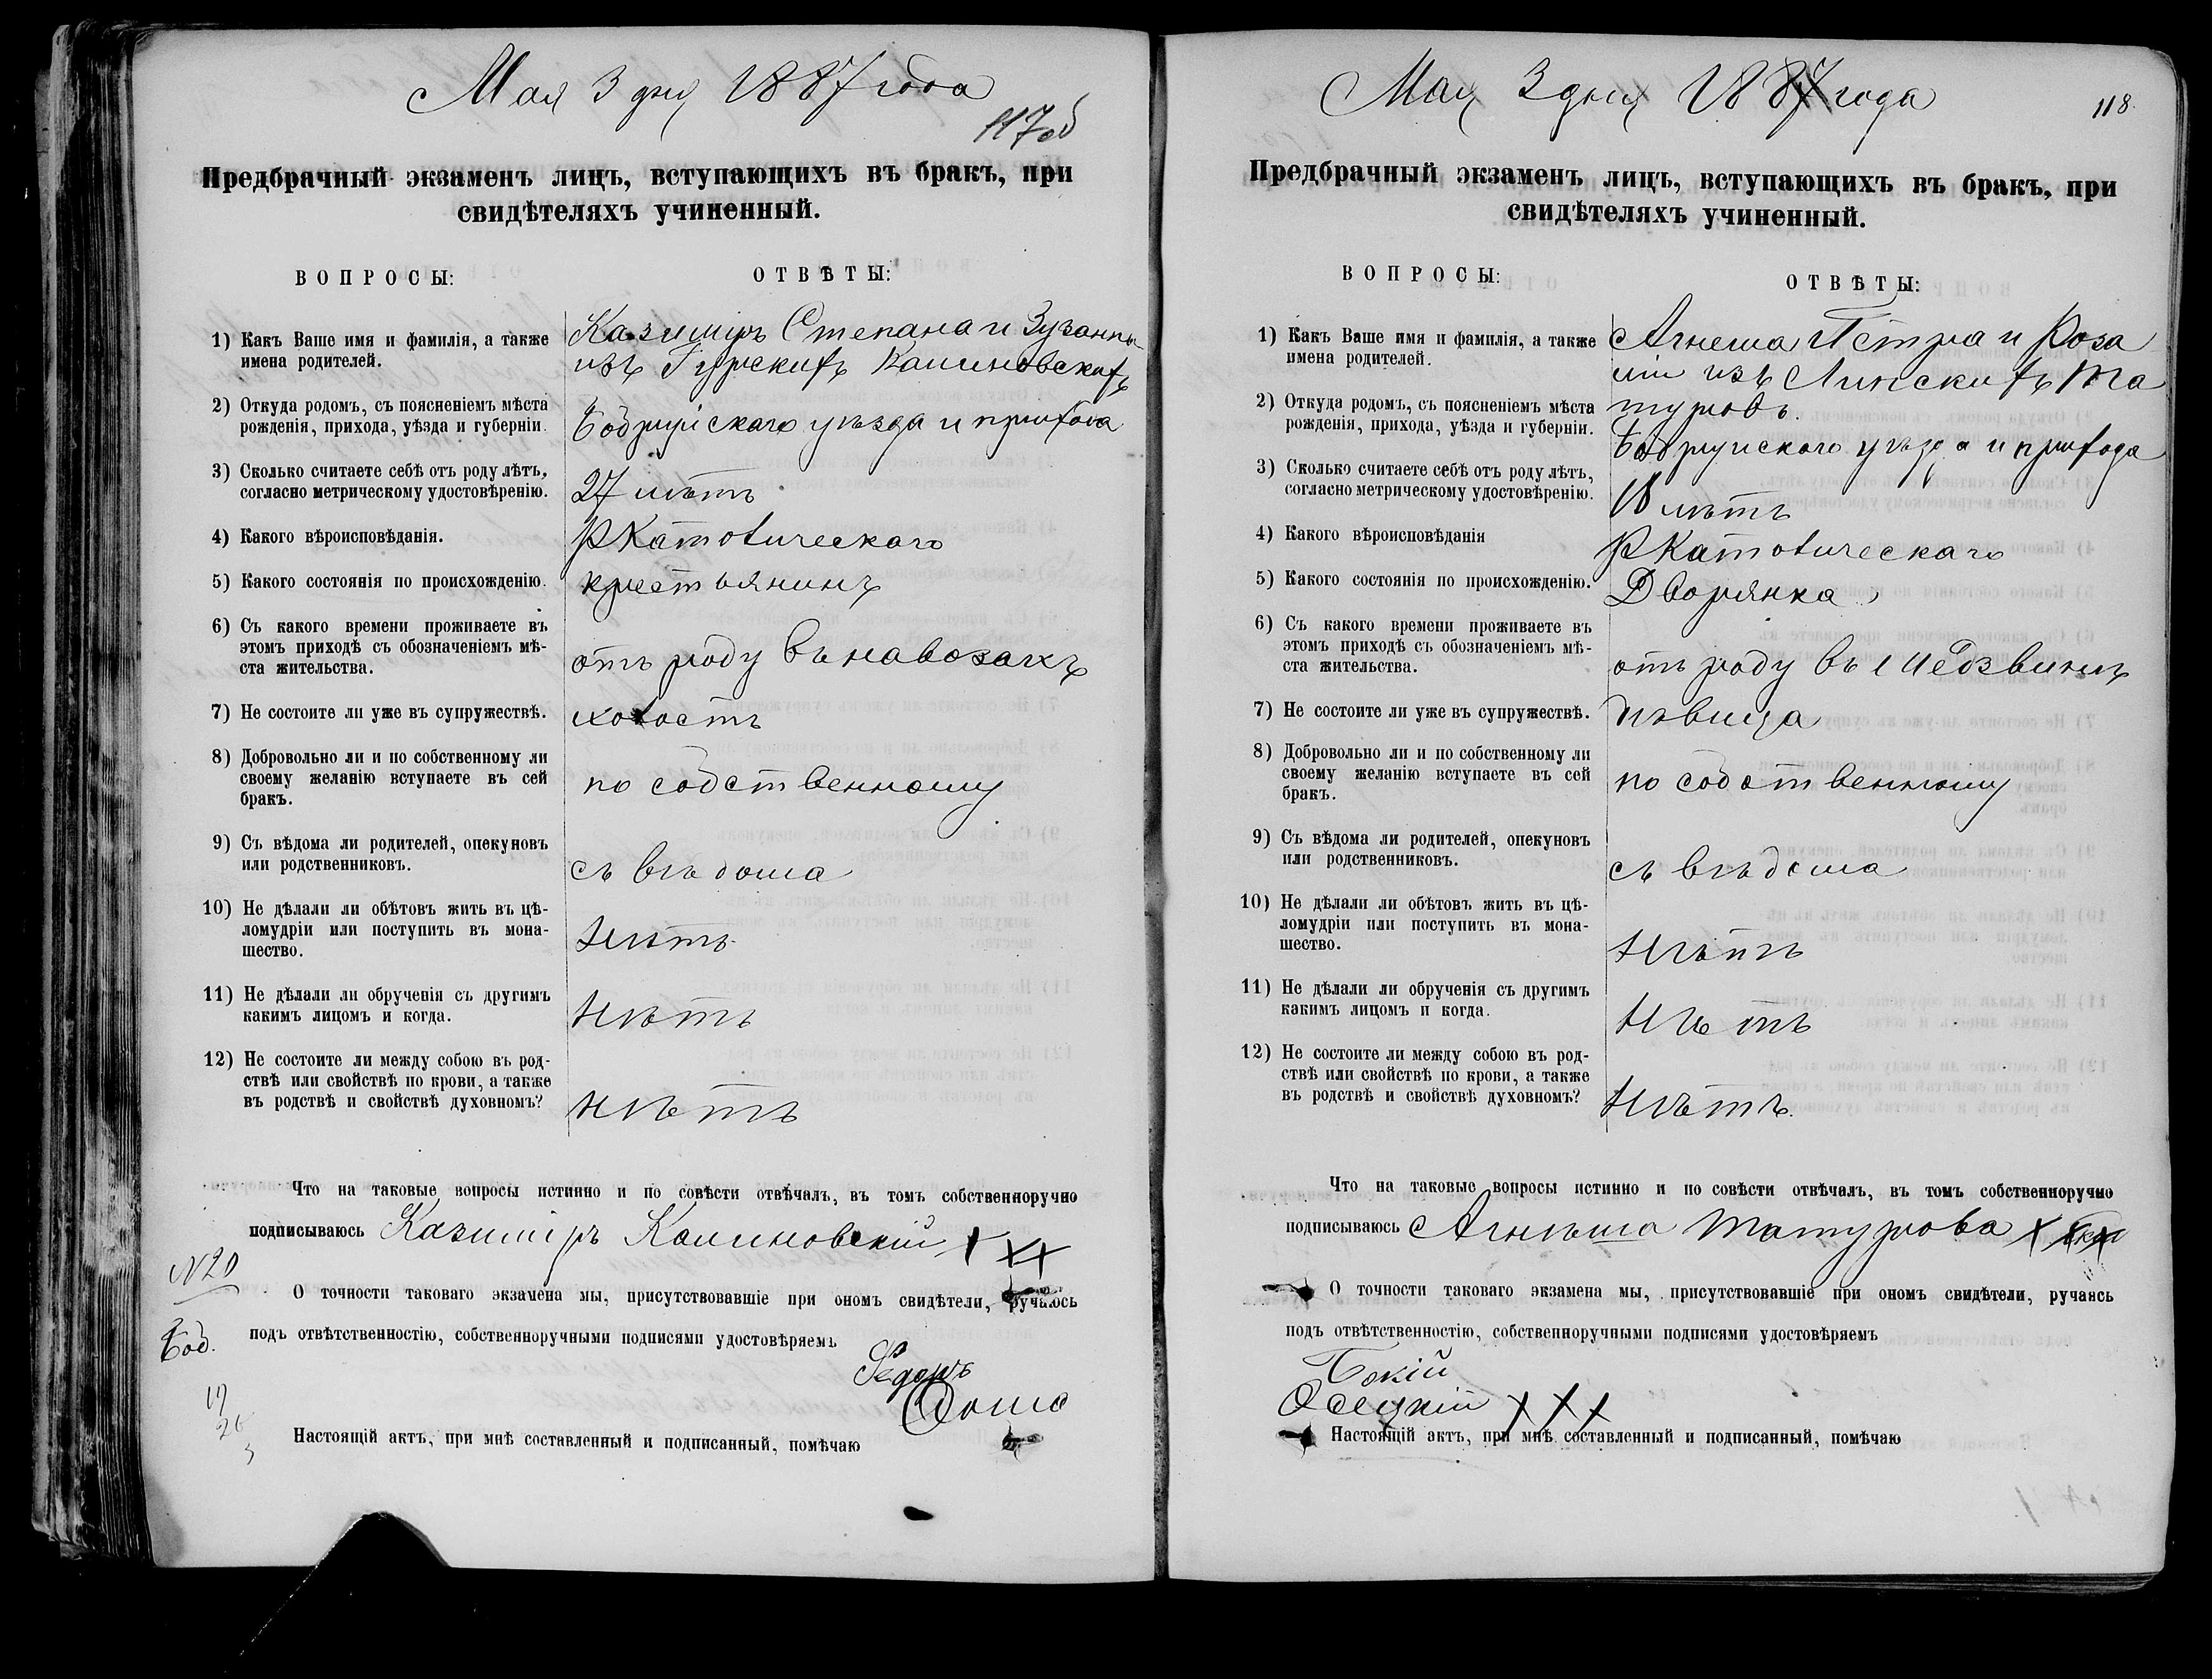 Мая 3 дня 1887 года
117об
Предбрачный экзаменъ лицъ, вступающихъ въ бракъ, при
свидѣтеляхъ учиненный.
ВОПРОСЫ:
ОТВѢТЫ:
1) Какъ Ваше имя и фамилія, а также
имена родителей.
Казимиръ Степана и Зузанны
изъ Гурскихъ Калиновскихъ
2) Откуда родомъ, съ поясненіемъ мѣста
рожденія, прихода, уѣзда и губерніи.
Бобруйскаго уѣзда и прихода
3) Сколько считаете себѣ отъ роду лѣтъ,
согласно метрическому удостовѣренію.
27 лѣтъ
4) Какого вѣроисповѣданія.
РКатолическаго
5) Какого состоянія по происхожденію.
крестьянинъ
6) Съ какого времени проживаете въ
этомъ приходѣ съ обозначеніемъ мѣ-
ста жительства.
отъ роду въ
7) Не состоите ли уже въ супружествѣ.
холостъ
8) Добровольно ли и по собственному ли
своему желанію вступаете въ сей
бракъ.
по собственному
9) Съ вѣдома ли родителей, опекуновъ
или родственниковъ.
съ вѣдома
10) Не дѣлали ли обѣтовъ жить въ цѣ-
ломудріи или поступить въ мона-
шество.
нѣтъ
11) Не дѣлали ли обрученія съ другимъ
какимъ лицомъ и когда.
нѣтъ
12) Не состоите ли между собою въ род-
ствѣ или свойствѣ по крови, а также
въ родствѣ и свойствѣ духовномъ?
нѣтъ
Что на таковые вопросы истинно и по совѣсти отвѣчалъ, въ томъ собственноручно
подписываюсь Казимиръ Калиновскій XXX
N 20
О точности таковаго экзамена мы, присутствовавшіе при ономъ свидѣтели, ручаясь
Боб.
подъ отвѣтственностію, собственноручными подписями удостовѣряемъ
Федоръ
Настоящій актъ, при мнѣ составленный и подписанный, помѣчаю
Мая 3 дня 1887 года
118
Предбрачный экзаменъ лицъ, вступающихъ въ бракъ, при
свидѣтеляхъ учиненный.
ВОПРОСЫ:
ОТВѢТЫ:
1) Какъ Ваше имя и фамилія, а также
имена родителей.
Агнеша Петра и Роза
ліи изъ Липскихъ Та
туровъ.
2) Откуда родомъ, съ поясненіемъ мѣста
рожденія, прихода, уѣзда и губерніи.
Бобруйскаго уѣзда и прихода
3) Сколько считаете себѣ отъ роду лѣтъ,
согласно метрическому удостовѣренію.
18 лѣтъ
4) Какого вѣроисповѣданія
РКатолическаго
5) Какого состоянія по происхожденію.
Дворянка
6) Съ какого времени проживаете въ
этомъ приходѣ съ обозначеніемъ мѣ-
ста жительства.
отъ роду въ
7) Не состоите ли уже въ супружествѣ.
дѣвица
8) Добровольно ли и по собственному ли
своему желанію вступаете въ сей
бракъ.
по собственному
9) Съ вѣдома ли родителей, опекуновъ
или родственниковъ.
съ вѣдома
10) Не дѣлали ли обѣтовъ жить въ цѣ-
ломудріи или поступить въ мона-
шество.
нѣтъ
11) Не дѣлали ли обрученія съ другимъ
какимъ лицомъ и когда.
нѣтъ
12) Не состоите ли между собою въ род-
ствѣ или свойствѣ по крови, а также
въ родствѣ и свойствѣ духовномъ?
нѣтъ.
Что на таковые вопросы истинно и по совѣсти отвѣчалъ, въ томъ собственноручно
подписываюсь Агнѣша Татурова
О точности таковаго экзамена мы, присутствовавшіе при ономъ свидѣтели, ручаясь
подъ отвѣтственностію, собственноручными подписями удостовѣряемъ
XXX
Настоящій актъ, при мнѣ составленный и подписанный, помѣчаю